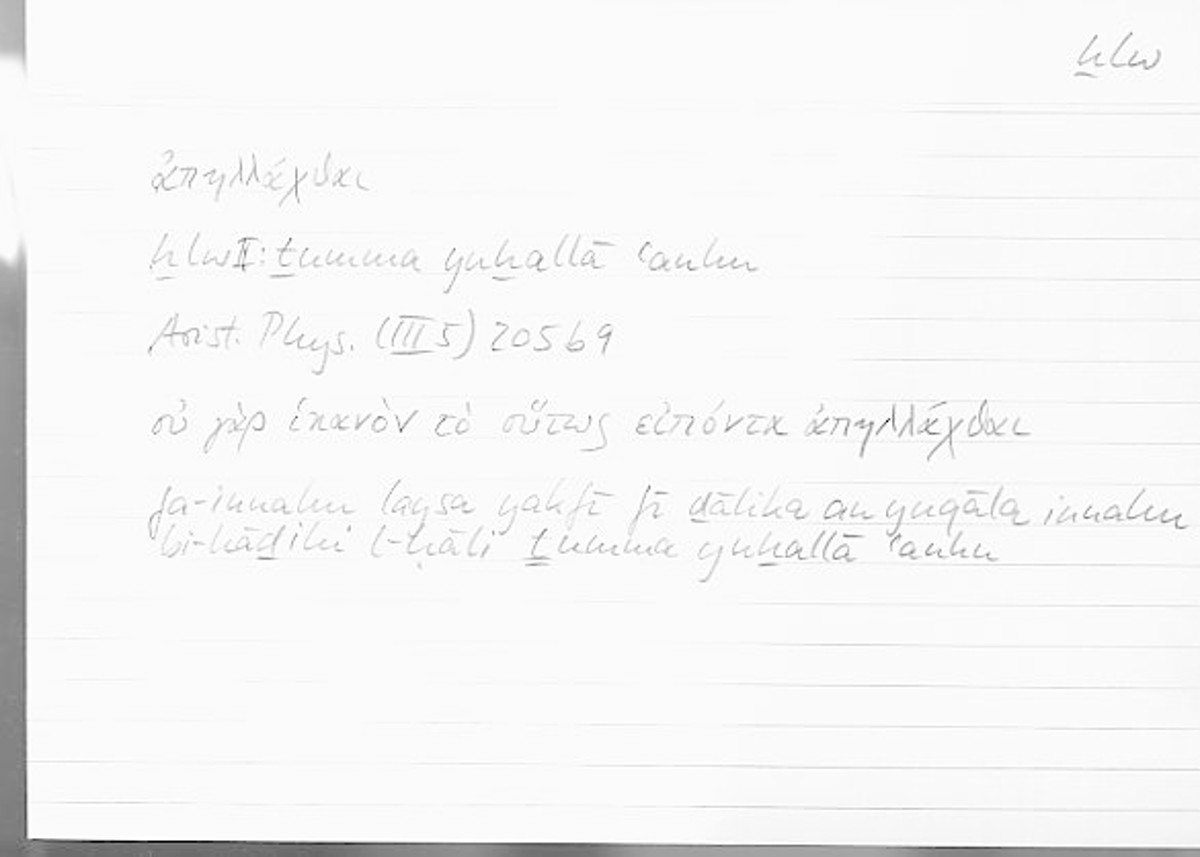 ḫlw
ἀπηλλάχθαι
ḫlw II: ṯumma yuḫallā ʿanhu
Arist. Phys. (III 5) 205 b 9
οὐ γὰρ ἱκανὸν τὸ οὕτως εἰπόντα ἀπηλλάχθαι
fa-innahu laysa yakfī fī ḏālika an yuqāla innahu
bi-hāḏihi l-ḥāli ṯumma yuḫallā ʿanhu